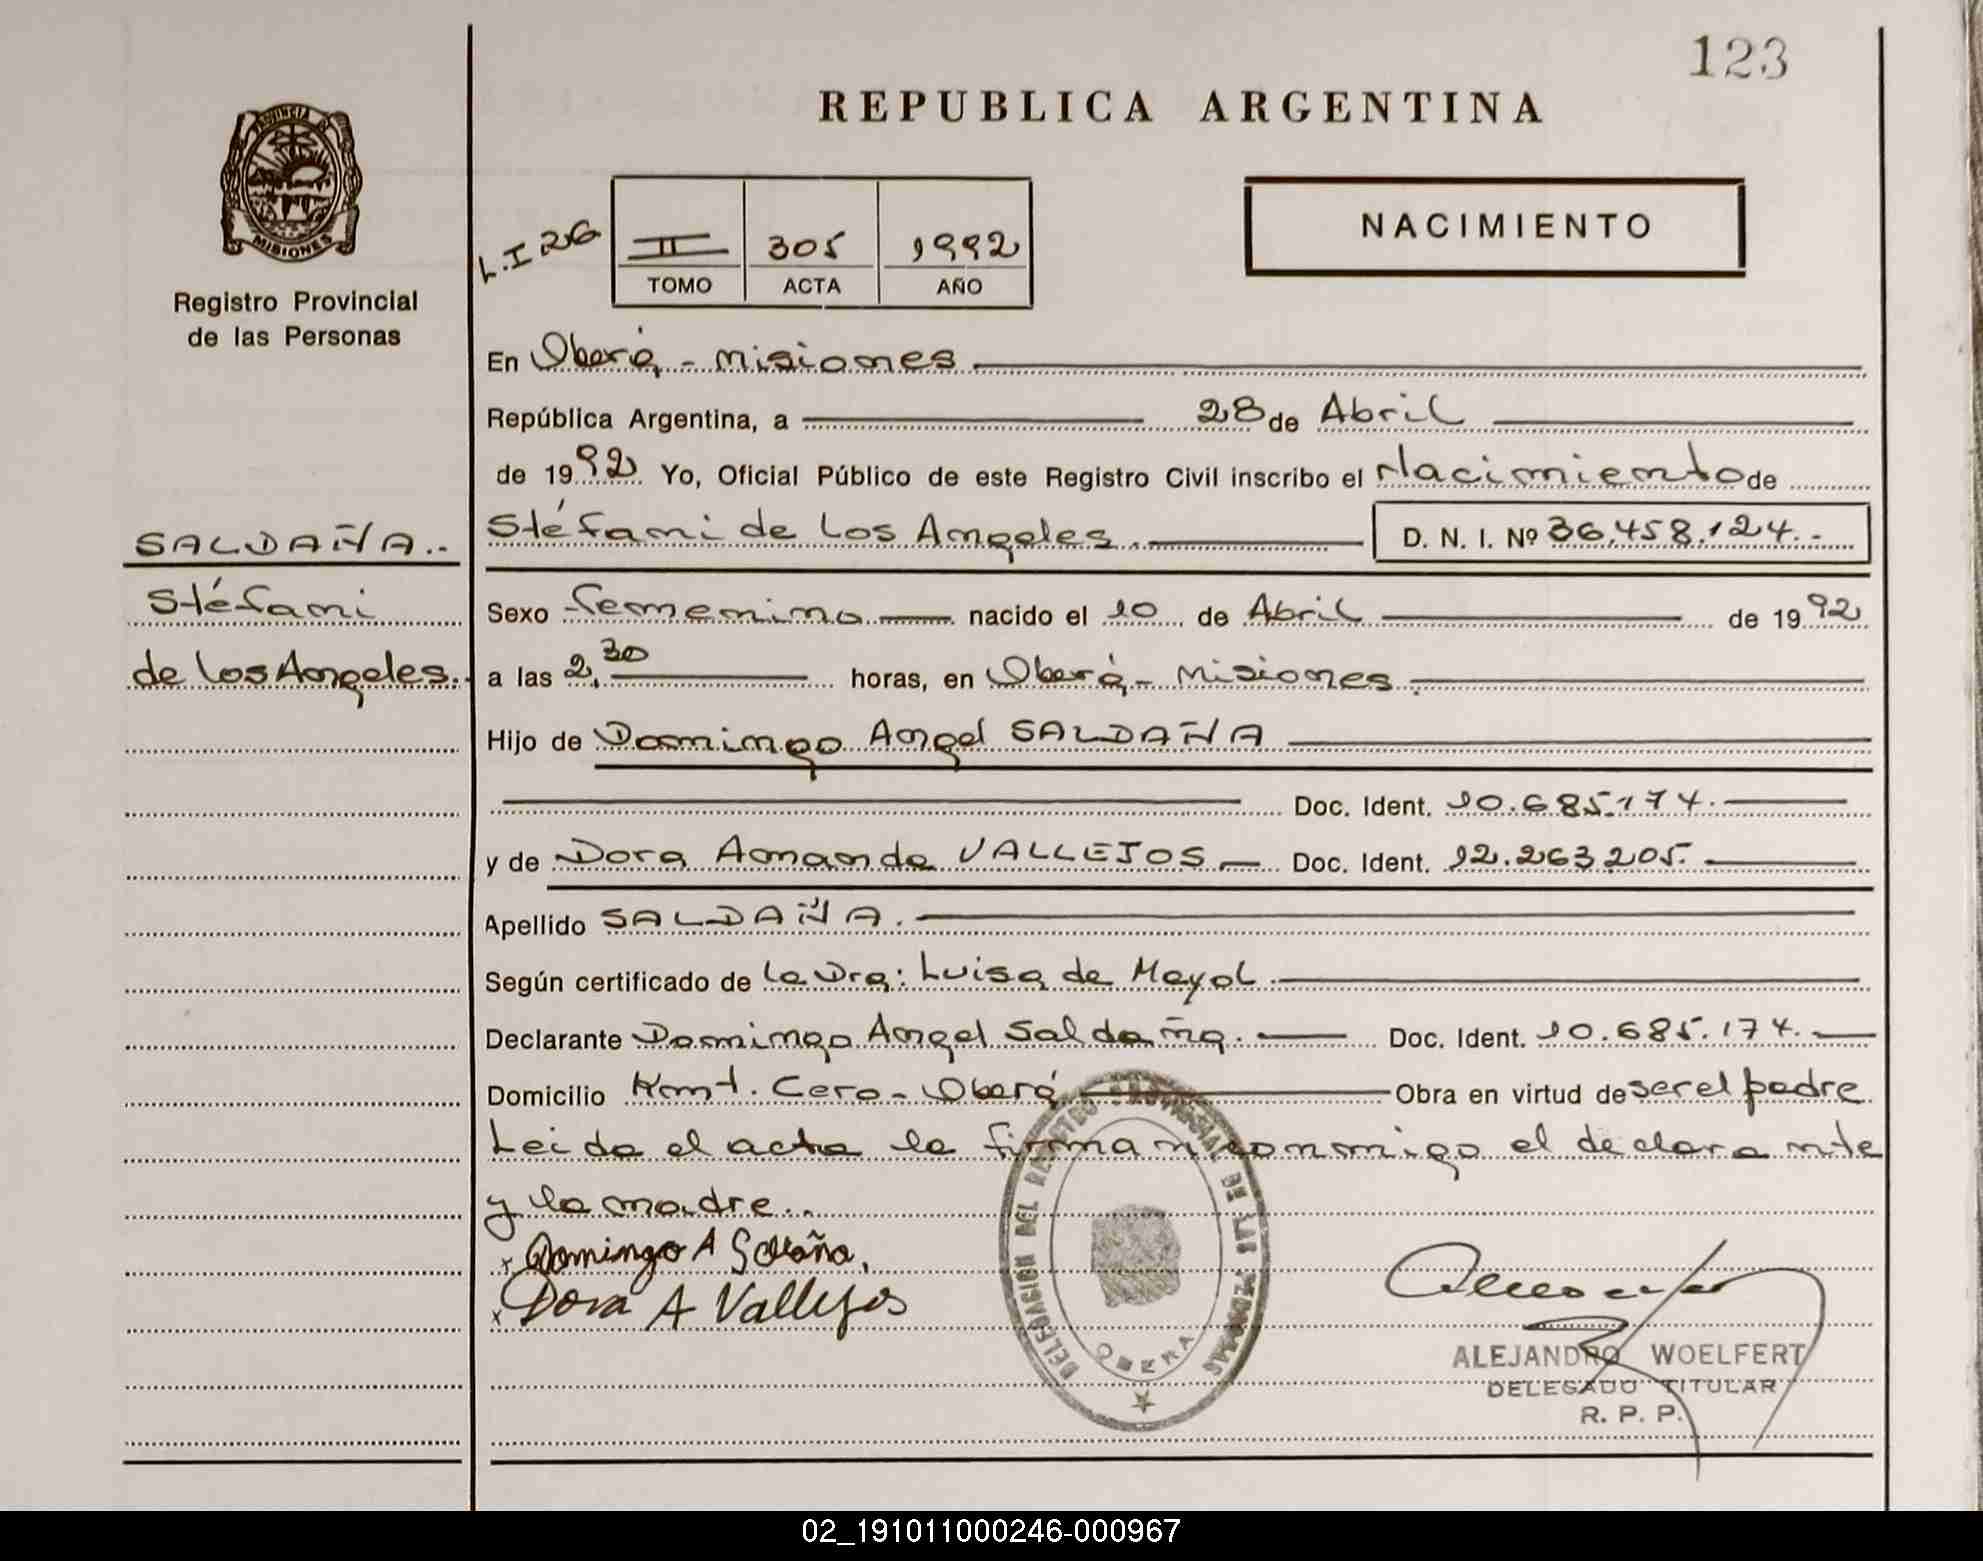 123
REPUBLICA ARGENTINA
PROVINCIA DE
MISIONES
Registro Provincial
de las Personas
L.I 26
II 305 1992
TOMO ACTA AÑO
NACIMIENTO
En Oberá - Misiones
República Argentina, a 28 de Abril
de 1992 Yo, Oficial Público de este Registro Civil inscribo el Nacimiento de
SALDAÑA.-
Stéfani de Los Angeles. D. N. I. Nº 36.458.124.-
Stéfani
Sexo femenino nacido el 10 de Abril de 1992
de Los Angeles.-
a las 2,30 horas, en Oberá - Misiones.
Hijo de Domingo Angel SALDAÑA
Doc. Ident. 10.685.174.
y de Dora Amanda VALLEJOS Doc. Ident. 12.263.205.
Apellido SALDAÑA.
Según certificado de la Dra: Luisa de Mayol.
Declarante Domingo Angel Saldaña. Doc. Ident. 10.685.174.
Domicilio Kmt. Cero - Oberá Obra en virtud de ser el padre
Leida el acta la firman conmigo el declarante
y la madre..
x Domingo A Saldaña.
x Dora A Vallejos
DELEGACION DEL REGISTRO PROVINCIAL DE LAS PERSONAS
OBERA
ALEJANDRO WOELFERT
DELEGADO TITULAR
R. P. P.
02_191011000246-000967